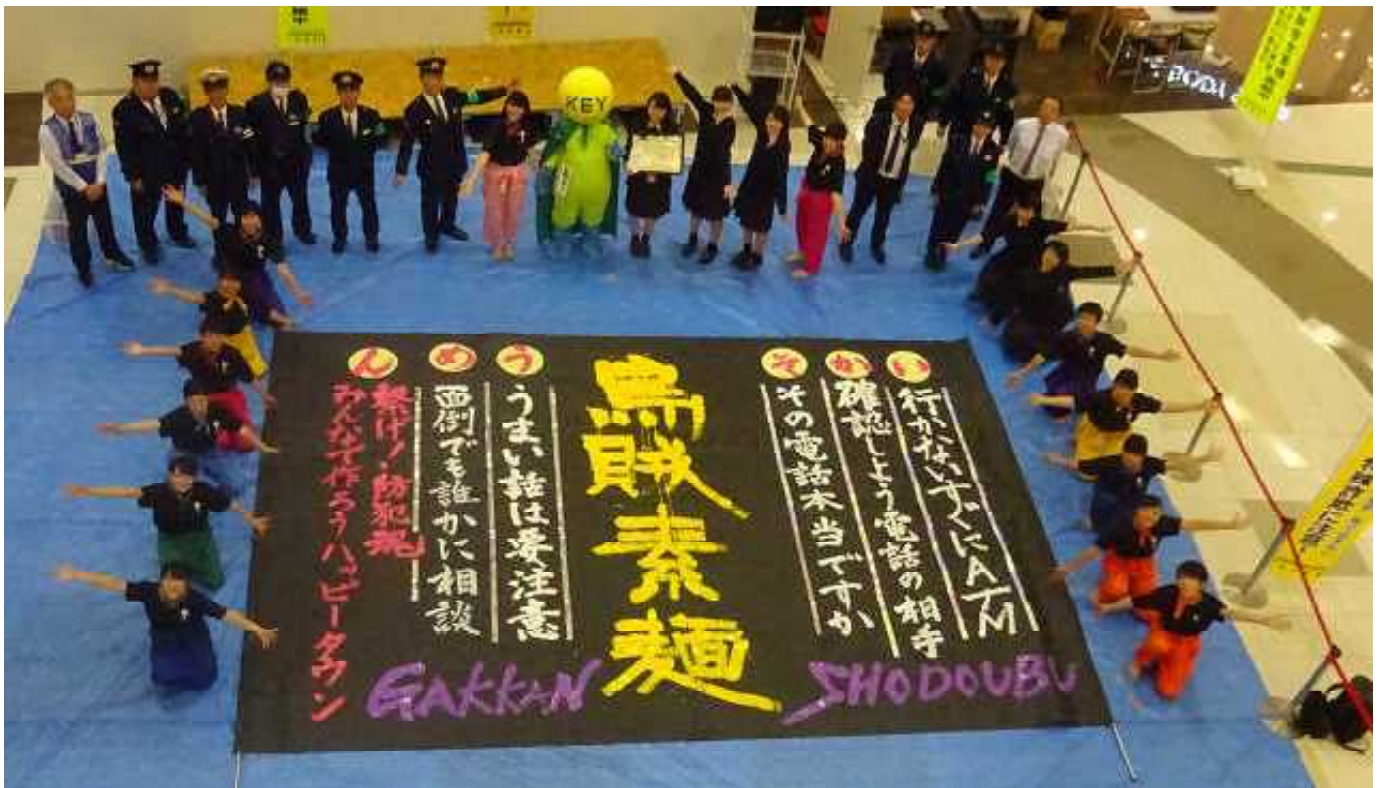 KEY
い
行かないすぐにATM
か
確認しよう電話の相手
そ
その電話本当ですか
烏賊素麺
う
うまい話は要注意
め
面倒でも誰かに相談
ん
繋げ!防犯の
みんなで作ろうハッピータウン
GAKKAN
SHODOUBU